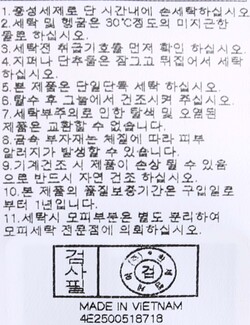 1.중성세제로 단 시간내에 손세탁하십시오.
2.세탁 및 헹굼은 30℃정도의 미지근한
물로 하십시오.
3.세탁전 취급기호를 먼저 확인 하십시오.
4.지퍼나 단추물은 잠그고 뒤집어서 세탁
하십시오.
5.본 제품은 단일단독 세탁 하십시오.
6.탈수 후 그늘에서 건조시켜 주십시오.
7.세탁부주의로 인한 탈색 및 오염된
제품은 교환할 수 없습니다.
8.금속 부자재는 체질에 따라 피부
알러지가 발생할 수 있습니다.
9.기계건조 시 제품이 손상 될 수 있음
으로 반드시 자연 건조 하십시오.
10.본 제품의 품질보증기간은 구입일로
부터 1년입니다.
11.세탁시 모피부분은 별도 분리하여
모피세탁 전문점에 의뢰하십시오.
검사필
검
MADE IN VIETNAM
4E2500518718